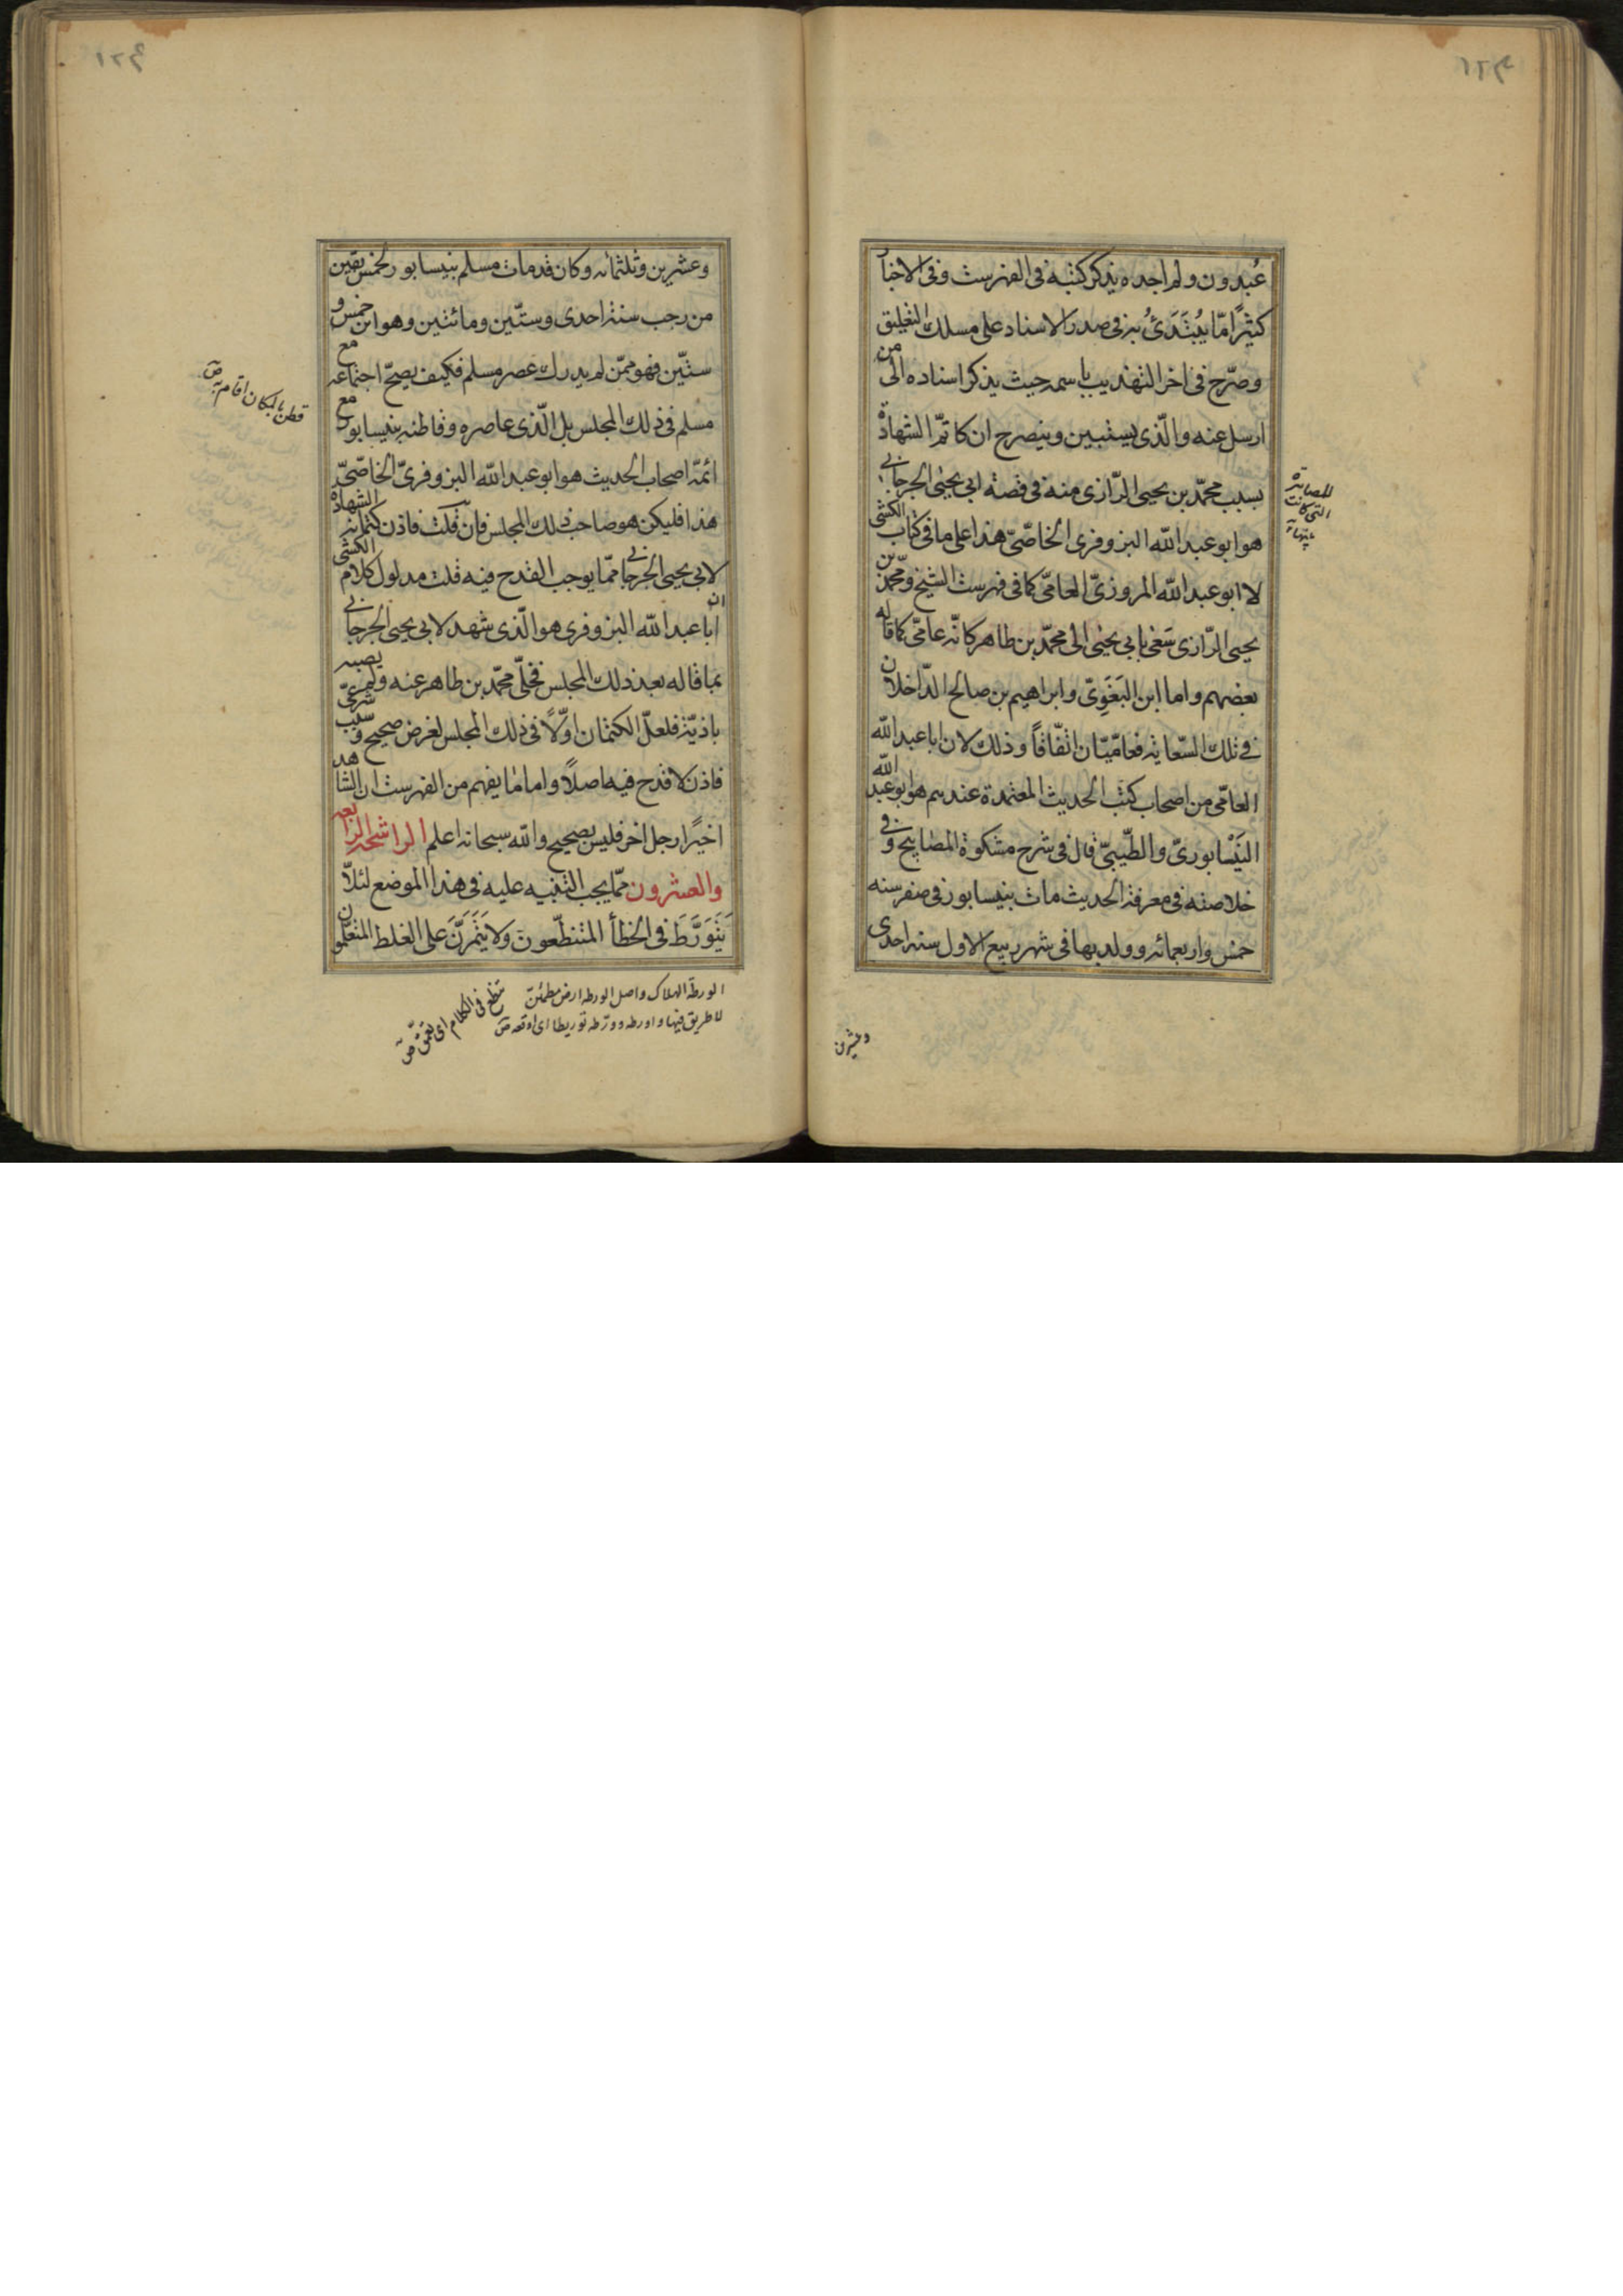 عُبدون ولم اجده يذكر كتبه فى الفهرست وفى الاخبار
كثيرًا مّا يُبْتَدَئُ به فى صدر الاسناد على مسلك التعليق
وصرّح فى اخر التهذيب باسمه حيث يذكر اسناده الى من
ارسل عنه والّذى يستبين وينصرح ان كاتم الشهادة
بسبب محمّد بن يحيى الرّازى منه فى قصة ابى يحيى الجرجانى
هو ابو عبد الله البزوفرى الخاصّىّ هذا على ما فى كتاب الكشى
لا ابو عبد الله المروزىّ العامّى كما فى فهرست الشيخ ومحمّد بن
يحيى الرّازى سَعَى بابى يحيى الى محمّد بن طاهر كانّه عامّى كما قاله
بعضهم واما ابن البَغَوِىّ وابراهيم بن صالح الدّاخلان
فى تلك السّعايه فعامّيّان اتّفاقاً وذلك لان ابا عبد الله
العامّى من اصحاب كتب الحديث المعتمدة عندهم هو ابو عبد الله
النَيْسابورىّ والطّيبىّ قال فى شرح مشكوة المصابيح وفى
خلاصته فى معرفة الحديث مات بنيسابور فى صفر سنه
خمس واربعمائه وولد بها فى شهر ربيع الاول سنه احدى
التى كانت
وعشرين
وعشرين وثلثمائه وكان قد مات مسلم بنيسابور لخمس بقين
من رجب سنة احدى وستّين ومائتين وهو ابن خمس و
ستّين فهو ممّن لم يدرك عصر مسلم فكيف يصحّ اجتماعه مع
مسلم فى ذلك المجلس بل الّذى عاصره وقاطنه بنيسابور مع
ائمّة اصحاب الحديث هو ابو عبد الله البزوفرىّ الخاصّىّ
هذا فليكن هو صاحب ذلك المجلس فان قلت فاذن كتمانه الشهادة
لابى يحيى الجرجانى ممّا يوجب القدح فيه قلت مدلول كلام الكشى
ان ابا عبد الله البزوفرى هو الّذى شهد لابى يحيى الجرجانى
بما قاله بعد ذلك المجلس فخلّى محمّد بن طاهر عنه ولم يصبه
باذيّة فلعلّ الكتمان اوّلًا فى ذلك المجلس لغرض صحيح وسبب شرعىّ
فاذن لا قدح فيه اصلًا واما ما يفهم من الفهرست ان الشاهد
اخيرًا رجل اخر فليس بصحيح والله سبحانه اعلم الراشحة الرابعه
والعشرون ممّا يجب التنبيه عليه فى هذا الموضع لئلّا
يَتَوَرَّطَ فى الخطأ المتنطّعون ولا يَتَمَرَّنَ على الغلط المتعلّمون
قطن بالمكان اقام به ص
الورطة الهلاك واصل الورطه ارض مطمئنة
لا طريق فيها واورطه وورّطه توريطا اى اوقعه ص
تنطع فى الكلام اى تعمّق ص